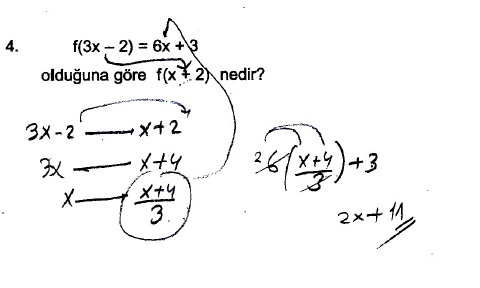 4. f(3x – 2) = 6x + 3
olduğuna göre f(x + 2) nedir?
3x-2 —— x+2
3x —— x+4
x —— x+4/3
2 6(x+4/3)+3
2x+11